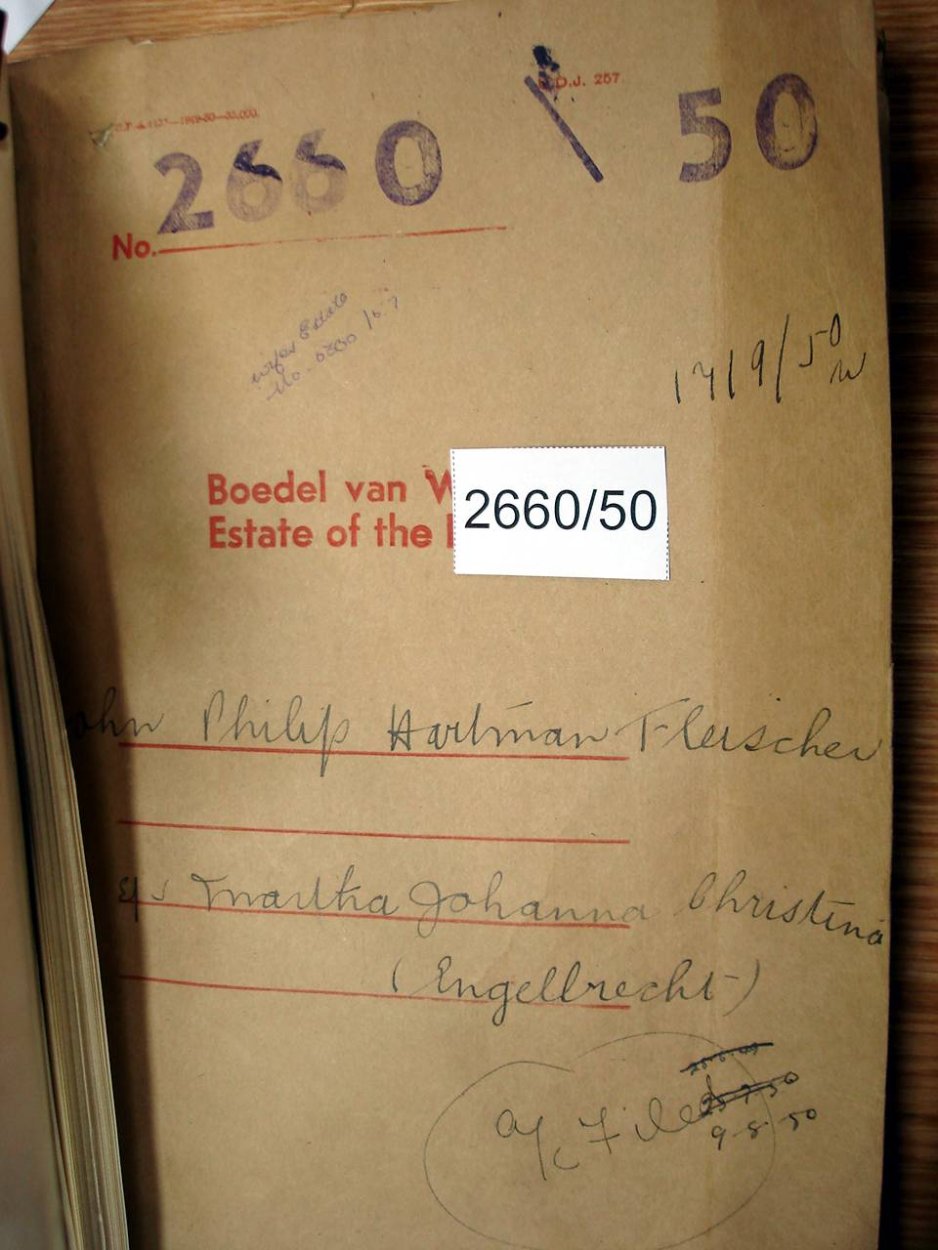 D.J. 257
2660 \ 50
No.
wifes Estate
No.
17/9/50
Boedel van W
Estate of the
2660/50
John Philip Hartman Fleischer
Martha Johanna Christina
(Engellbrecht)
a/c Filed
9-8-50